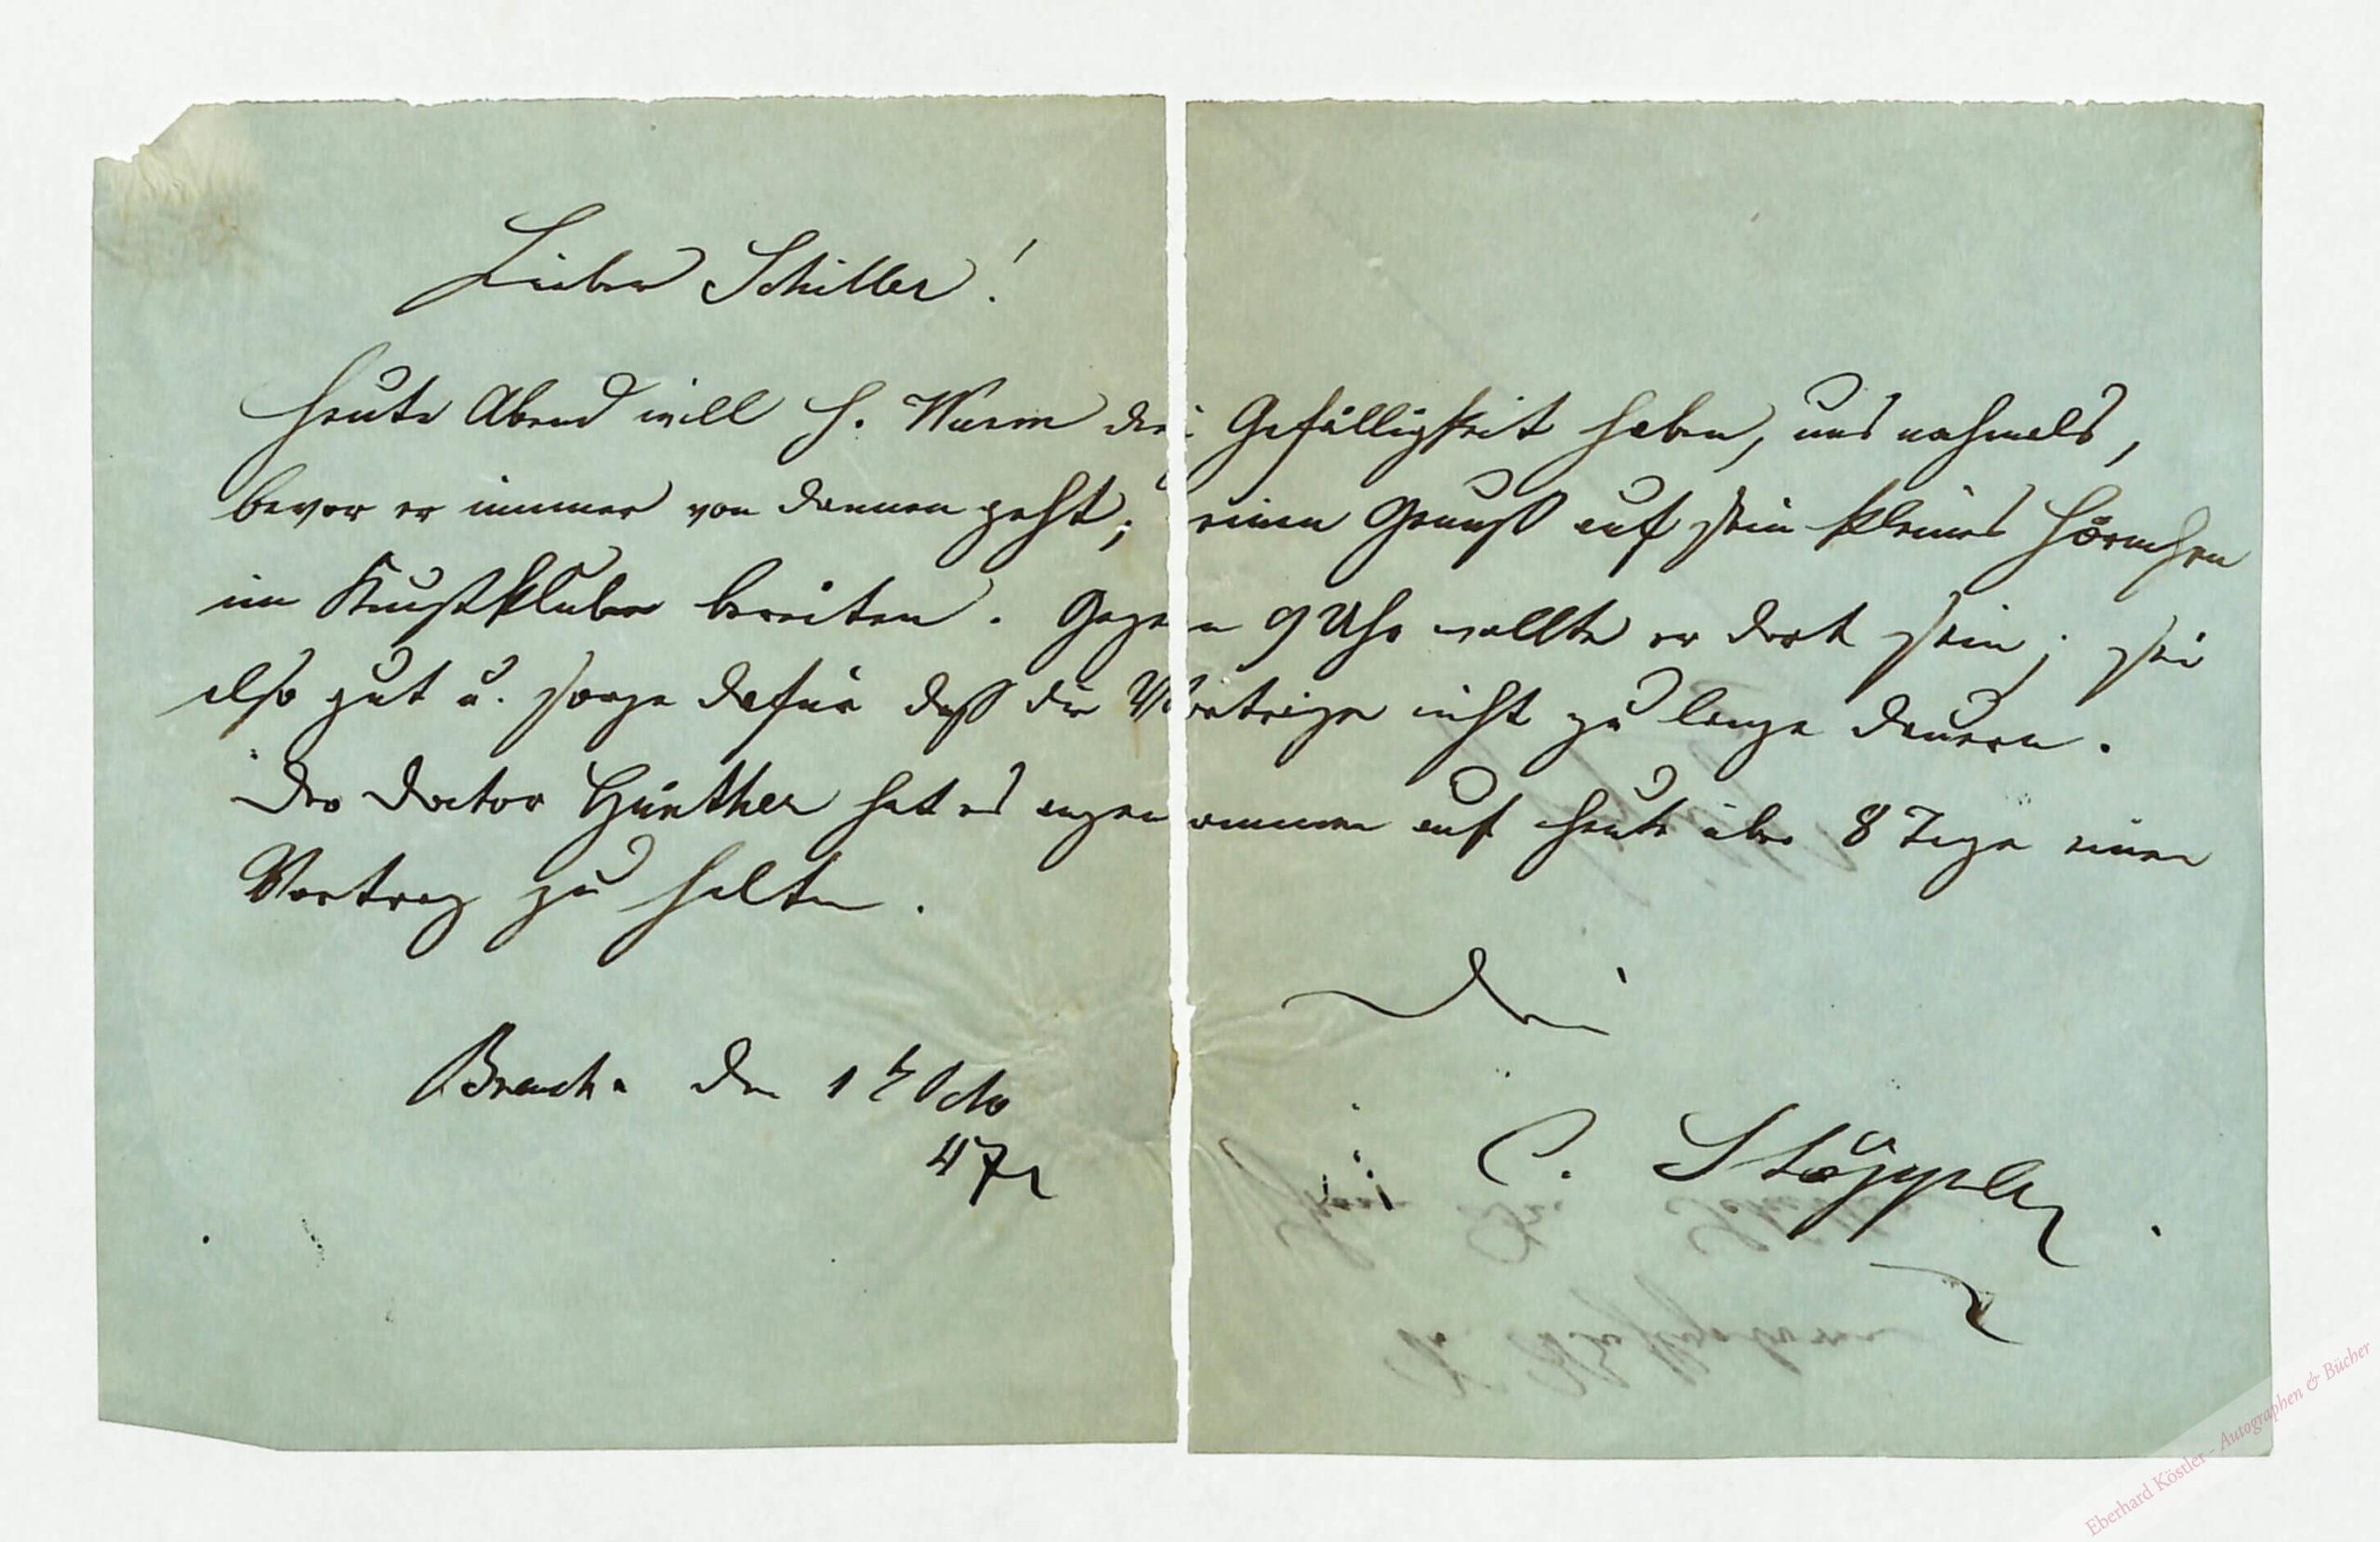 Lieber Schiller!
Heute Abend will H. Wurm die Gefälligkeit haben, uns nochmals,
bevor er immer von dannen geht, einen Genuß auf sein kleines Hörnchen
im Kunstklubb bereiten. Gegen 9 Uhr wollte er dort sein; sei
also gut u. sorge dafür daß die Vorträge nicht zu lange dauern.
Der Doctor Günther hat es angenommen auf heute über 8 Tage einen
Vortrag zu halten.
Dein
den 1 t Octo
47
C. Stöppler
Eberhard Köstler – Autographen & Bücher